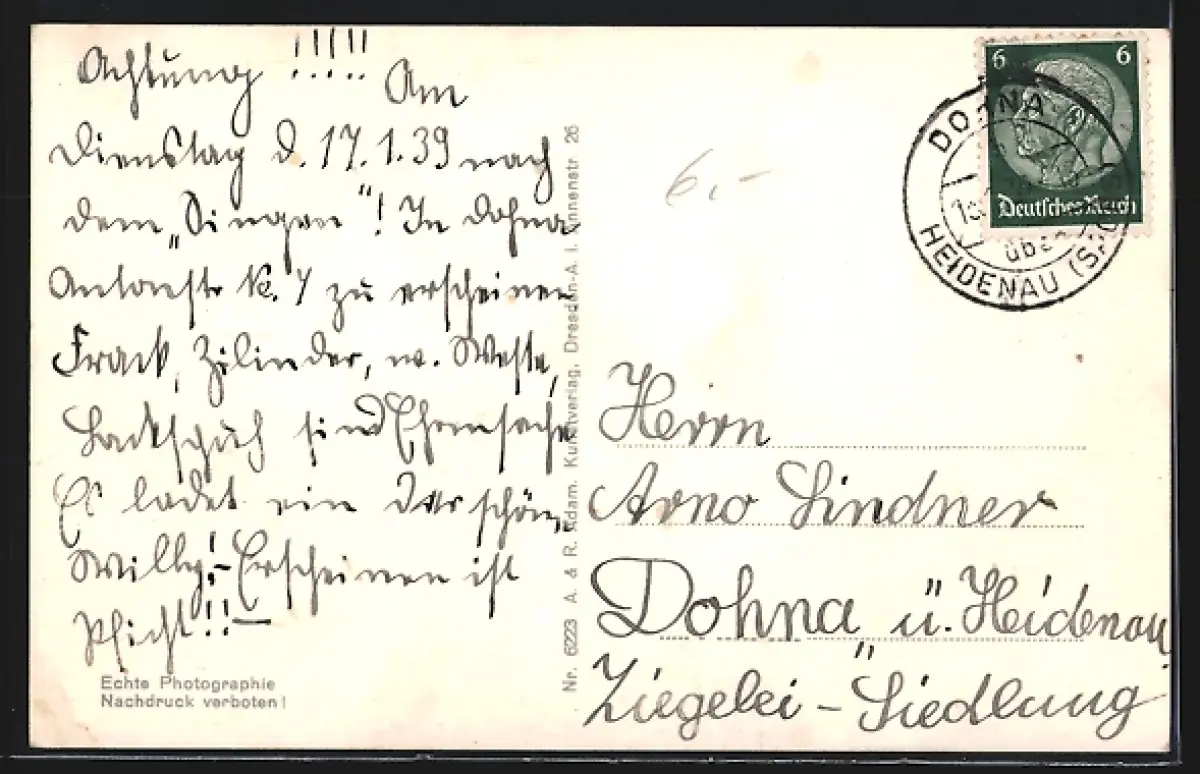 Achtung !!!!! Am
Dienstag d. 17.1.39 nach
dem „Singen"! In Dohna
Antonstr. Nr. 7 zu erscheinen
Frack, Zilinder, w. Weste,
Lackschuh sind Ehrensache
Es ladet ein der schöne
Willy! - Erscheinen ist
Pflicht!! -
Echte Photographie
Nachdruck verboten!
Nr. 6223 A. & R. Adam, Kunstverlag, Dresden-A. I, Annenstr. 26
6.-
6 6
Deutsches Reich
DOHNA
über
HEIDENAU (S.)
Herrn
Arno Lindner
Dohna ü. Heidenau
Ziegelei - Siedlung